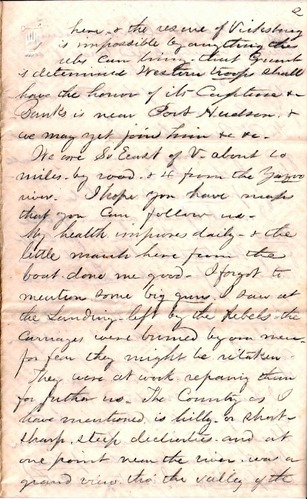 2
here, & the rescue of Vicksburg
is impossible by anything the
rebs can bring, that Grant
is determined Western troops shall
have the honor of its Capture &
Banks is near Port Hudson. &
we may yet join him &c &c.
We are So East of V. about 10
miles. by road. & 4 from the Yazoo
river. I hope you have maps
that you can follow us.
My health improves daily. & the
little march here from the
boat. done me good. I forgot to
mention some big guns I saw at
the Landing left by the Rebels. the
Carriages were burned by our men
for fear they might be retaken
They were at work, repairing them
for further use. The Country, as I
have mentioned is hilly. or short-
sharp, steep declivities. and at
one point near the river was a
grand view. the valley of the